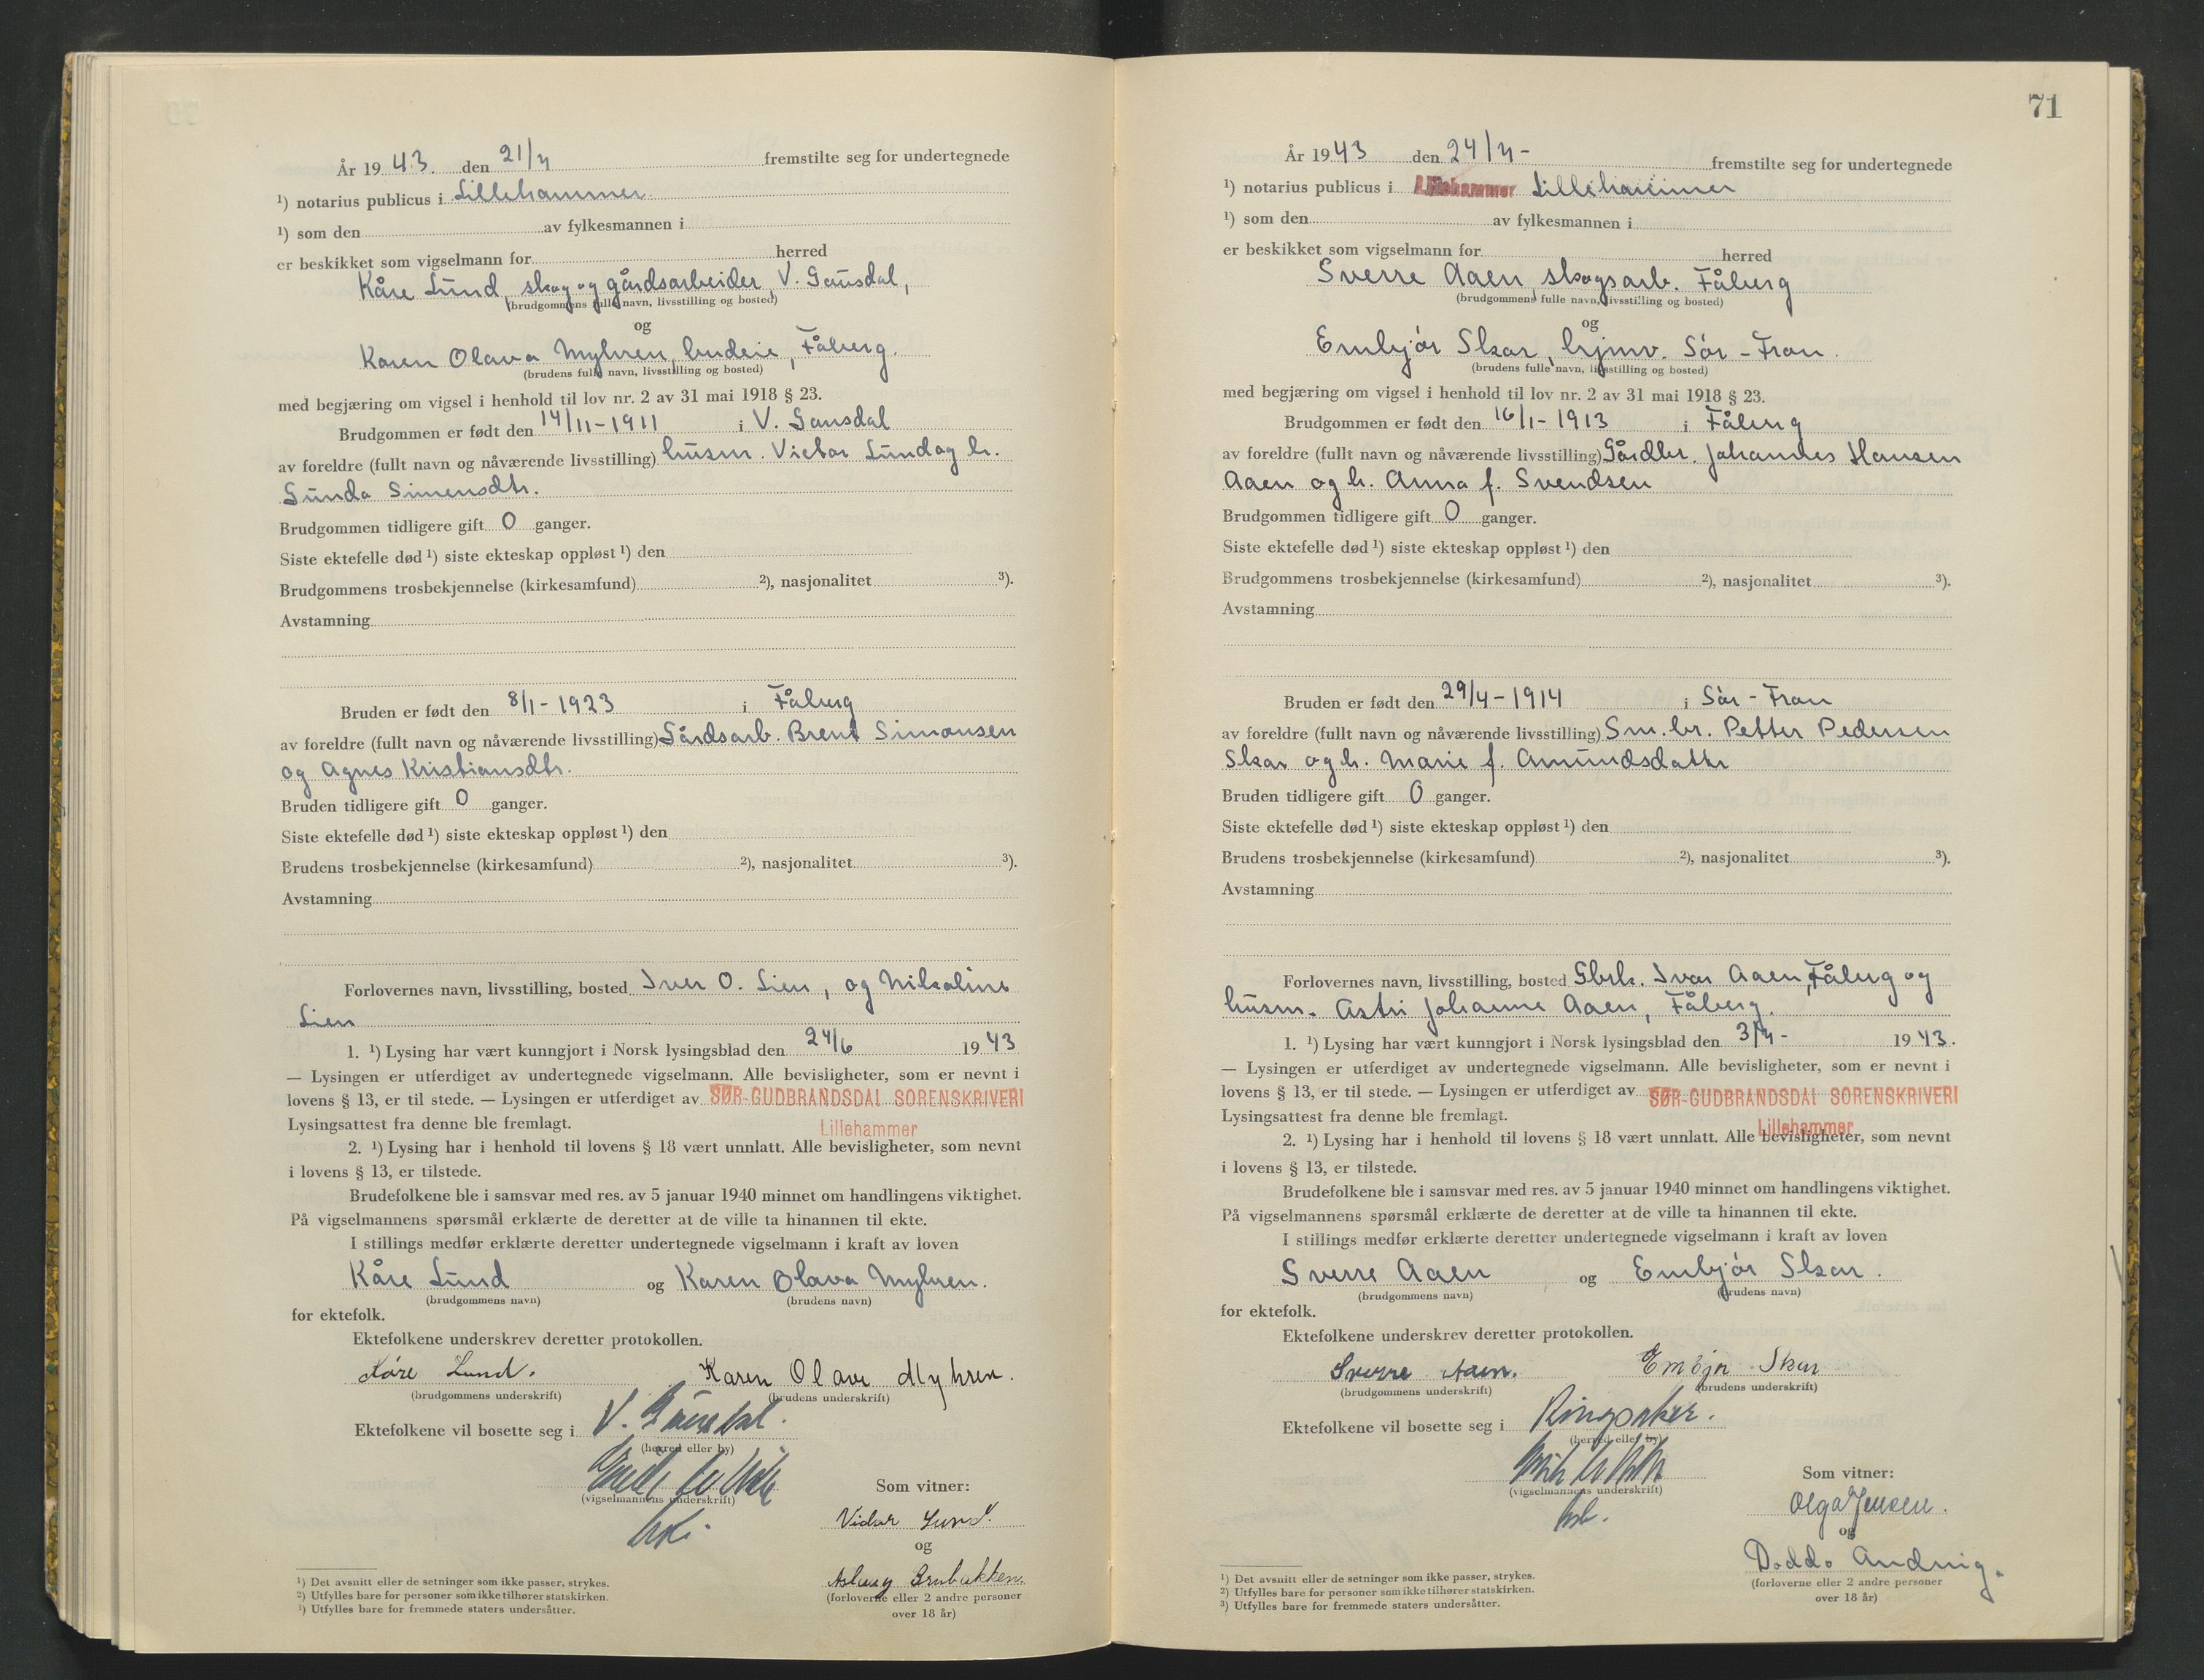 År 1943. den 21/7 fremstilte seg for undertegnede
¹) notarius publicus i Lillehammer.
¹) som den av fylkesmannen i
er beskikket som vigselmann for herred
Kåre Lund, skog og gårdsarbeider, V. Gausdal,
(brudgommens fulle navn, livsstilling og bosted)
og
Karen Olava Myhren, budeie, Fåberg.
(brudens fulle navn, livsstilling og bosted)
med begjæring om vigsel i henhold til lov nr. 2 av 31 mai 1918 § 23.
Brudgommen er født den 14/11-1911 i V. Gausdal
av foreldre (fullt navn og nåværende livsstilling) husm. Victor Lund og h.
Lunda Simensdtr.
Brudgommen tidligere gift 0 ganger.
Siste ektefelle død ¹) siste ekteskap oppløst ¹) den
Brudgommens trosbekjennelse (kirkesamfund) ²), nasjonalitet ³).
Avstamning
Bruden er født den 8/1-1923 i Fåberg
av foreldre (fullt navn og nåværende livsstilling) Gårdsarb. Brent Simonsen
og Agnes Kristiansdtr.
Bruden tidligere gift 0 ganger.
Siste ektefelle død ¹) siste ekteskap oppløst ¹) den
Brudens trosbekjennelse (kirkesamfund) ²), nasjonalitet ³).
Avstamning
Forlovernes navn, livsstilling, bosted Iver O. Lien, og Nikoline
Lien
1. ¹) Lysing har vært kunngjort i Norsk lysingsblad den 24/6 1943
— Lysingen er utferdiget av undertegnede vigselmann. Alle bevisligheter, som er nevnt i
lovens § 13, er til stede. — Lysingen er utferdiget av SØR-GUDBRANDSDAL SORENSKRIVERI
Lysingsattest fra denne ble fremlagt. Lillehammer
2. ¹) Lysing har i henhold til lovens § 18 vært unnlatt. Alle bevisligheter, som nevnt
i lovens § 13, er tilstede.
Brudefolkene ble i samsvar med res. av 5 januar 1940 minnet om handlingens viktighet.
På vigselmannens spørsmål erklærte de deretter at de ville ta hinannen til ekte.
I stillings medfør erklærte deretter undertegnede vigselmann i kraft av loven
Kåre Lund og Karen Olava Myhren.
(brudgommens navn) (brudens navn)
for ektefolk.
Ektefolkene underskrev deretter protokollen.
Kåre Lund. Karen Olava Myhren.
(brudgommens underskrift) (brudens underskrift)
Ektefolkene vil bosette seg i V. Gausdal.
(herred eller by)
(vigselmannens underskrift)
Som vitner:
Vidar Lund.
og
Aslaug Brubakken.
(forloverne eller 2 andre personer
over 18 år)
¹) Det avsnitt eller de setninger som ikke passer, strykes.
²) Utfylles bare for personer som ikke tilhører statskirken.
³) Utfylles bare for fremmede staters undersåtter.
71
År 1943 den 24/7- fremstilte seg for undertegnede
¹) notarius publicus i Lillehammer Lillehammer
¹) som den av fylkesmannen i
er beskikket som vigselmann for herred
Sverre Aaen, skogsarb. Fåberg
(brudgommens fulle navn, livsstilling og bosted)
og
Embjór Skar, hjmv. Sór-Fron.
(brudens fulle navn, livsstilling og bosted)
med begjæring om vigsel i henhold til lov nr. 2 av 31 mai 1918 § 23.
Brudgommen er født den 16/1-1913 i Fåberg
av foreldre (fullt navn og nåværende livsstilling) Gårdbr. Johannes Hansen
Aaen og h. Anna f. Svendsen
Brudgommen tidligere gift 0 ganger.
Siste ektefelle død ¹) siste ekteskap oppløst ¹) den
Brudgommens trosbekjennelse (kirkesamfund) ²), nasjonalitet ³).
Avstamning
Bruden er født den 29/4-1914 i Sór-Fron
av foreldre (fullt navn og nåværende livsstilling) Sm.br. Petter Pedersen
Skar og h. Marie f. Amundsdattr
Bruden tidligere gift 0 ganger.
Siste ektefelle død ¹) siste ekteskap oppløst ¹) den
Brudens trosbekjennelse (kirkesamfund) ²), nasjonalitet ³).
Avstamning
Forlovernes navn, livsstilling, bosted Gbrk. Ivar Aaen, Fåberg og
husm. Astri Johanne Aaen, Fåberg.
1. ¹) Lysing har vært kunngjort i Norsk lysingsblad den 3/7- 1943.
— Lysingen er utferdiget av undertegnede vigselmann. Alle bevisligheter, som er nevnt i
lovens § 13, er til stede. — Lysingen er utferdiget av SØR-GUDBRANDSDAL SORENSKRIVERI
Lysingsattest fra denne ble fremlagt. Lillehammer
2. ¹) Lysing har i henhold til lovens § 18 vært unnlatt. Alle bevisligheter, som nevnt
i lovens § 13, er tilstede.
Brudefolkene ble i samsvar med res. av 5 januar 1940 minnet om handlingens viktighet.
På vigselmannens spørsmål erklærte de deretter at de ville ta hinannen til ekte.
I stillings medfør erklærte deretter undertegnede vigselmann i kraft av loven
Sverre Aaen og Embjór Skar.
(brudgommens navn) (brudens navn)
for ektefolk.
Ektefolkene underskrev deretter protokollen.
Sverre Aaen. Embjør Skar
(brudgommens underskrift) (brudens underskrift)
Ektefolkene vil bosette seg i Ringsaker.
(herred eller by)
(vigselmannens underskrift)
Som vitner:
Olga Jensen.
og
Doddo
(forloverne eller 2 andre personer
over 18 år)
¹) Det avsnitt eller de setninger som ikke passer, strykes.
²) Utfylles bare for personer som ikke tilhører statskirken.
³) Utfylles bare for fremmede staters undersåtter.